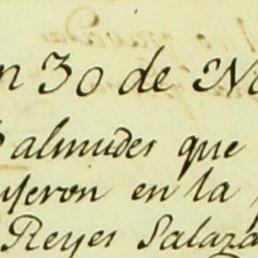 n 30 de No
almudes que
usieron en la
Reyes Salaza